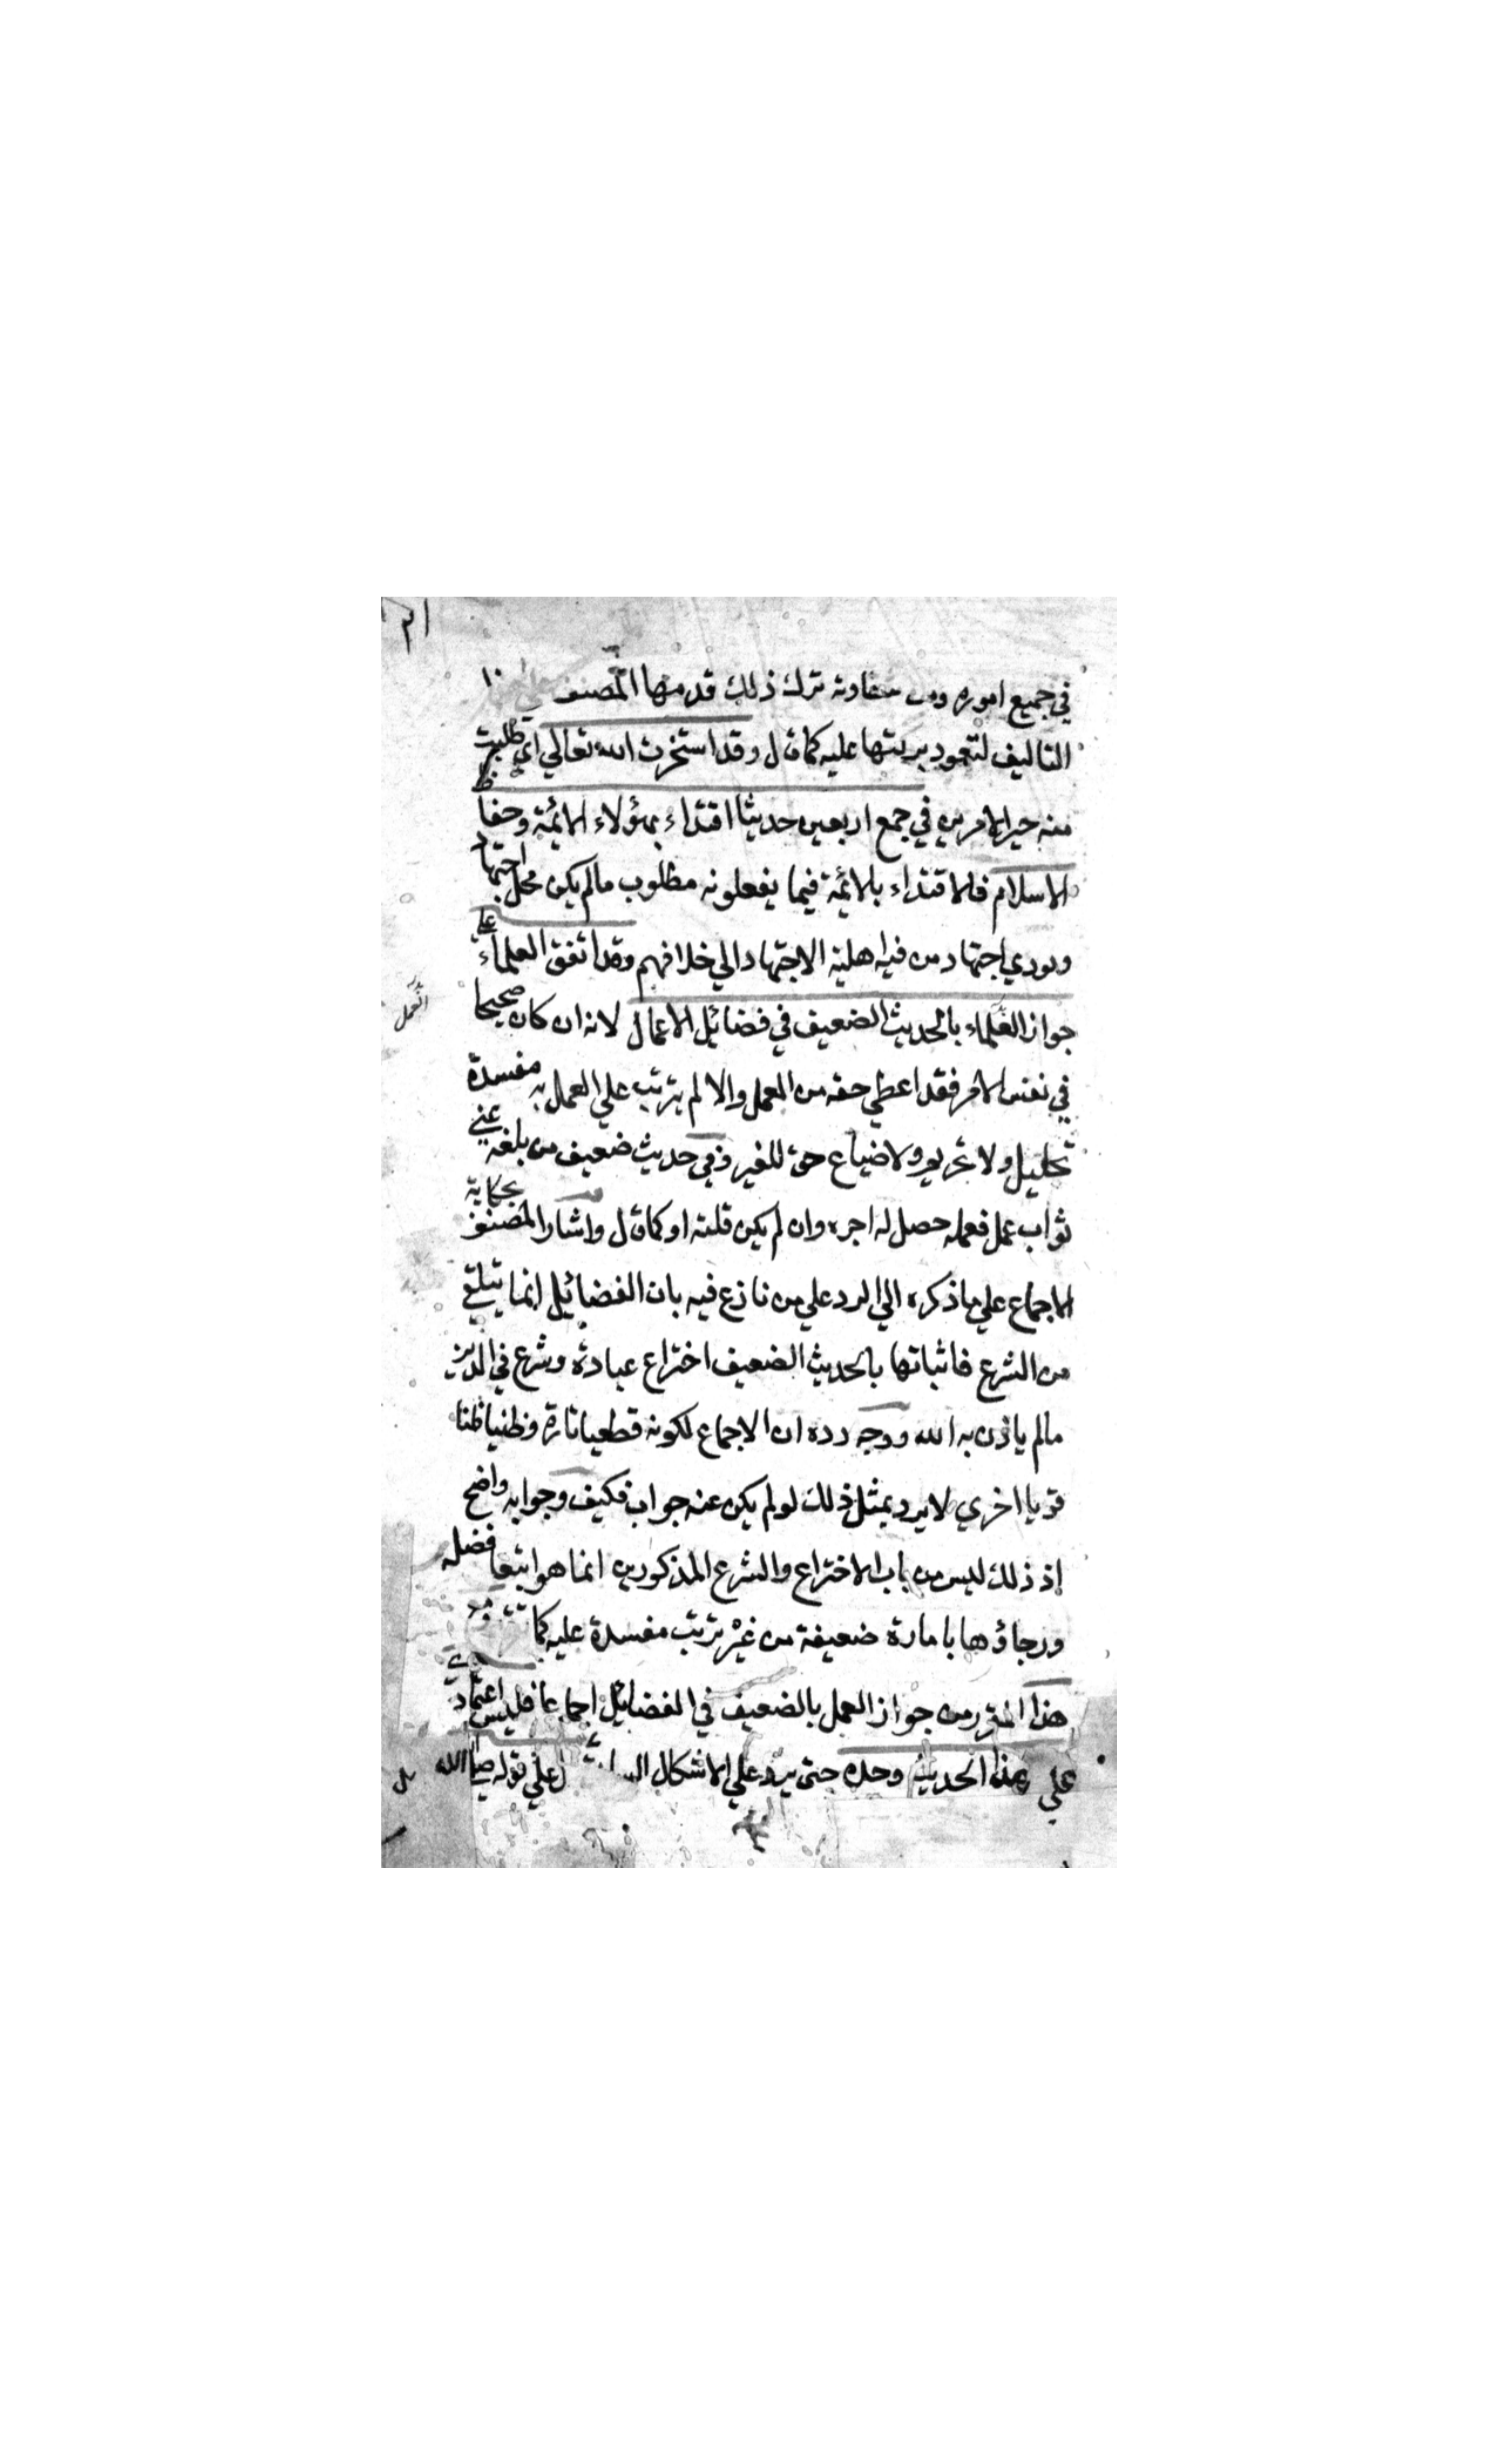 في جميع اموره ومن شقاوته ترك ذلك قدمها المصنف
التاليف لتعود بركتها عليه كما قال وقد استخرت الله تعالي اي طلبت
منه خير الامرين في جمع اربعين حديثا اقتداء بهؤلاء الائمة وحفاظ
الاسلام فالاقتداء بالائمة فيما يفعلونه مطلوب مالم يكن محل اجتهاد
ويودي اجتهاد من فيه اهلية الاجتهاد الي خلافهم وقد اتفق العلماء علي
جواز العلماء بالحديث الضعيف في فضائل الاعمال لانه ان كان صحيحا
العمل
في نفس الامر فقد اعطي حقه من العمل والا لم يترتب علي العمل به مفسدة
تحليل ولا تحريم ولا ضياع حق للغير وفي حديث ضعيف من بلغه عني
ثواب عمل فعمله حصل له اجره وان لم يكن قلته او كما قال واشار المصنف بحكاية
الاجماع علي ما ذكره الي الرد علي من نازع فيه بان الفضائل انما تتلقي
من الشرع فاثباتها بالحديث الضعيف اختراع عبادة وشرع في الدين
مالم ياذن به الله ووجه رده ان الاجماع لكونه قطعيا تارة وظنيا ظنا
قويا اخري لا يرد بمثل ذلك لو لم يكن عنه جواب فكيف وجوابه واضح
إذ ذلك ليس من باب الاختراع والشرع المذكورين انما هو ابتغا فضله
ورجاؤها بامارة ضعيفة من غير ترتب مفسدة عليه كما
هذا المقرر من جواز العمل بالضعيف في الفضائل اجماعا فليس اعتمادي
علي هذا الحديث وحده حتي يرد علي الاشكال علي قوله صلي الله